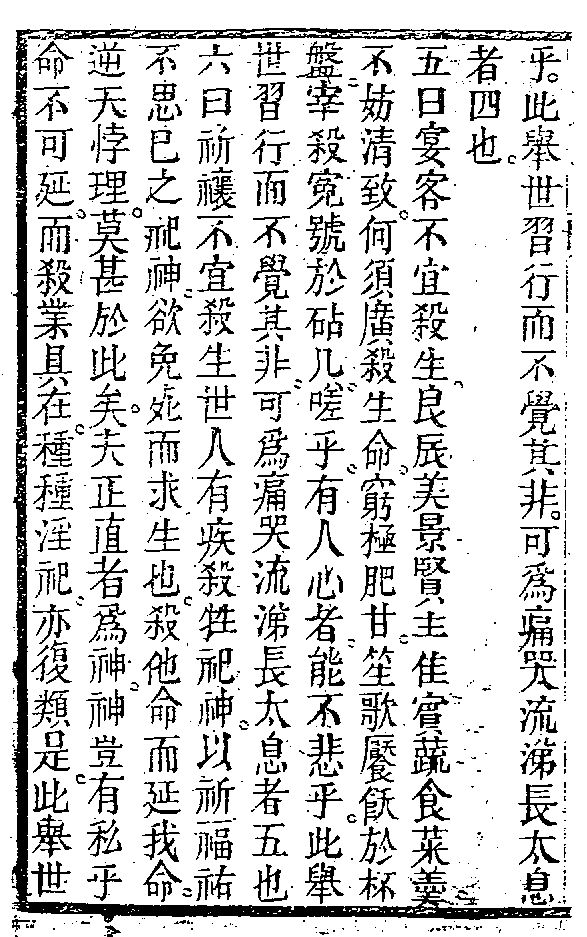 乎。此舉世習行而不覺其非。可為痛哭流涕長太息
者四也。
五曰宴客不宜殺生。良辰美景賢主佳賓蔬食菜羹
不妨清致。何須廣殺生命。窮極肥甘。笙歌饜飫於杯
盤。宰殺冤號於砧几。嗟乎。有人心者。能不悲乎。此舉
世習行而不覺其非。可為痛哭流涕長太息者五也
六曰祈禳不宜殺生世人有疾殺牲祀神。以祈福祐
不思己之祀神。欲免死而求生也。殺他命而延我命。
逆天悖理。莫甚於此矣。夫正直者為神。神豈有私乎
命不可延。而殺業具在。種種淫祀。亦復類是。此舉世